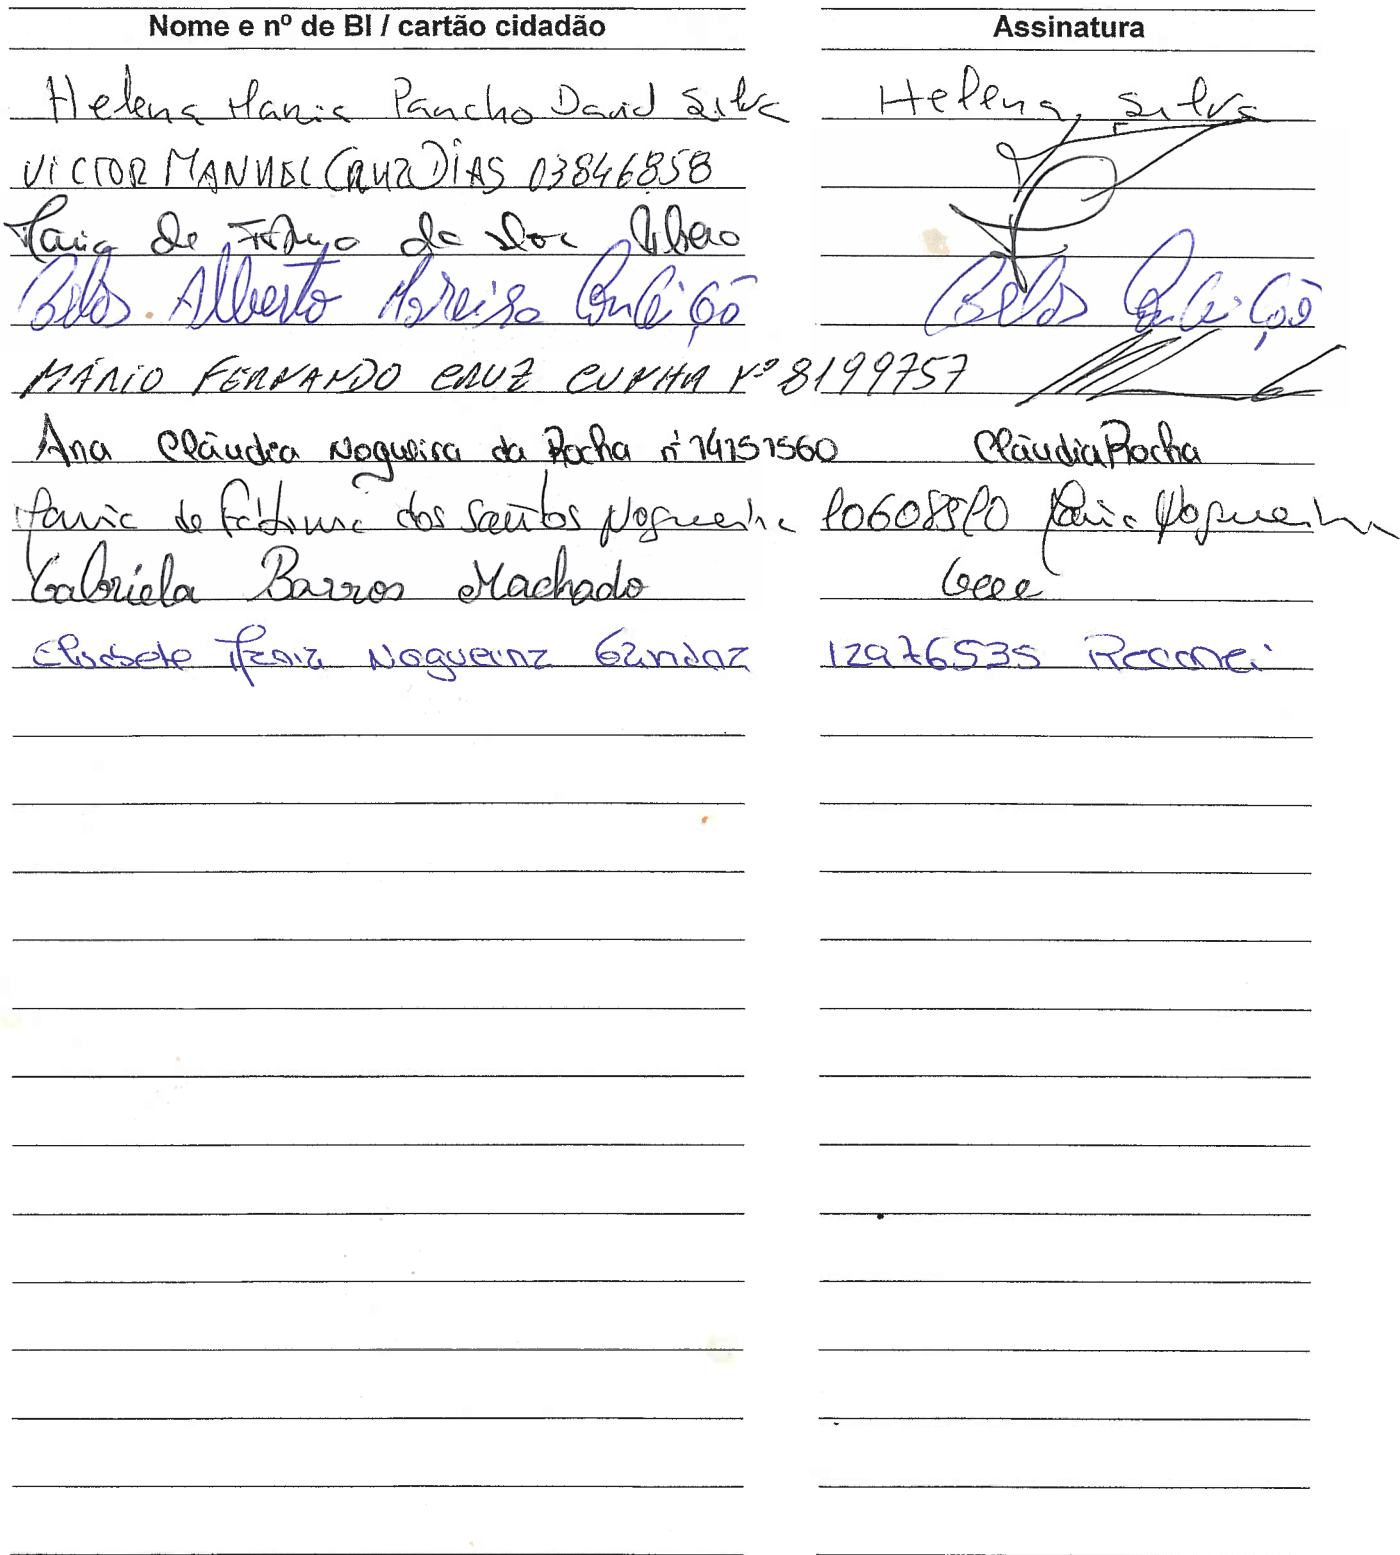 Nome e nº de BI / cartão cidadão Assinatura
Helena Maria Pancho David Silva Helena Silva
VICTOR MANUEL CRUZ DIAS 03846858
Maria de da
Carlos Alberto Moreira Conceição Carlos Conceição
MÁRIO FERNANDO CRUZ CUNHA Nº 8199757
Ana Cláudia Nogueira da Rocha nº 14151560 Cláudia Rocha
Maria de Fátima dos Santos Nogueira Maria Nogueira
Gabriela Barros Machado
Elisabete Maria Nogueira 12976535